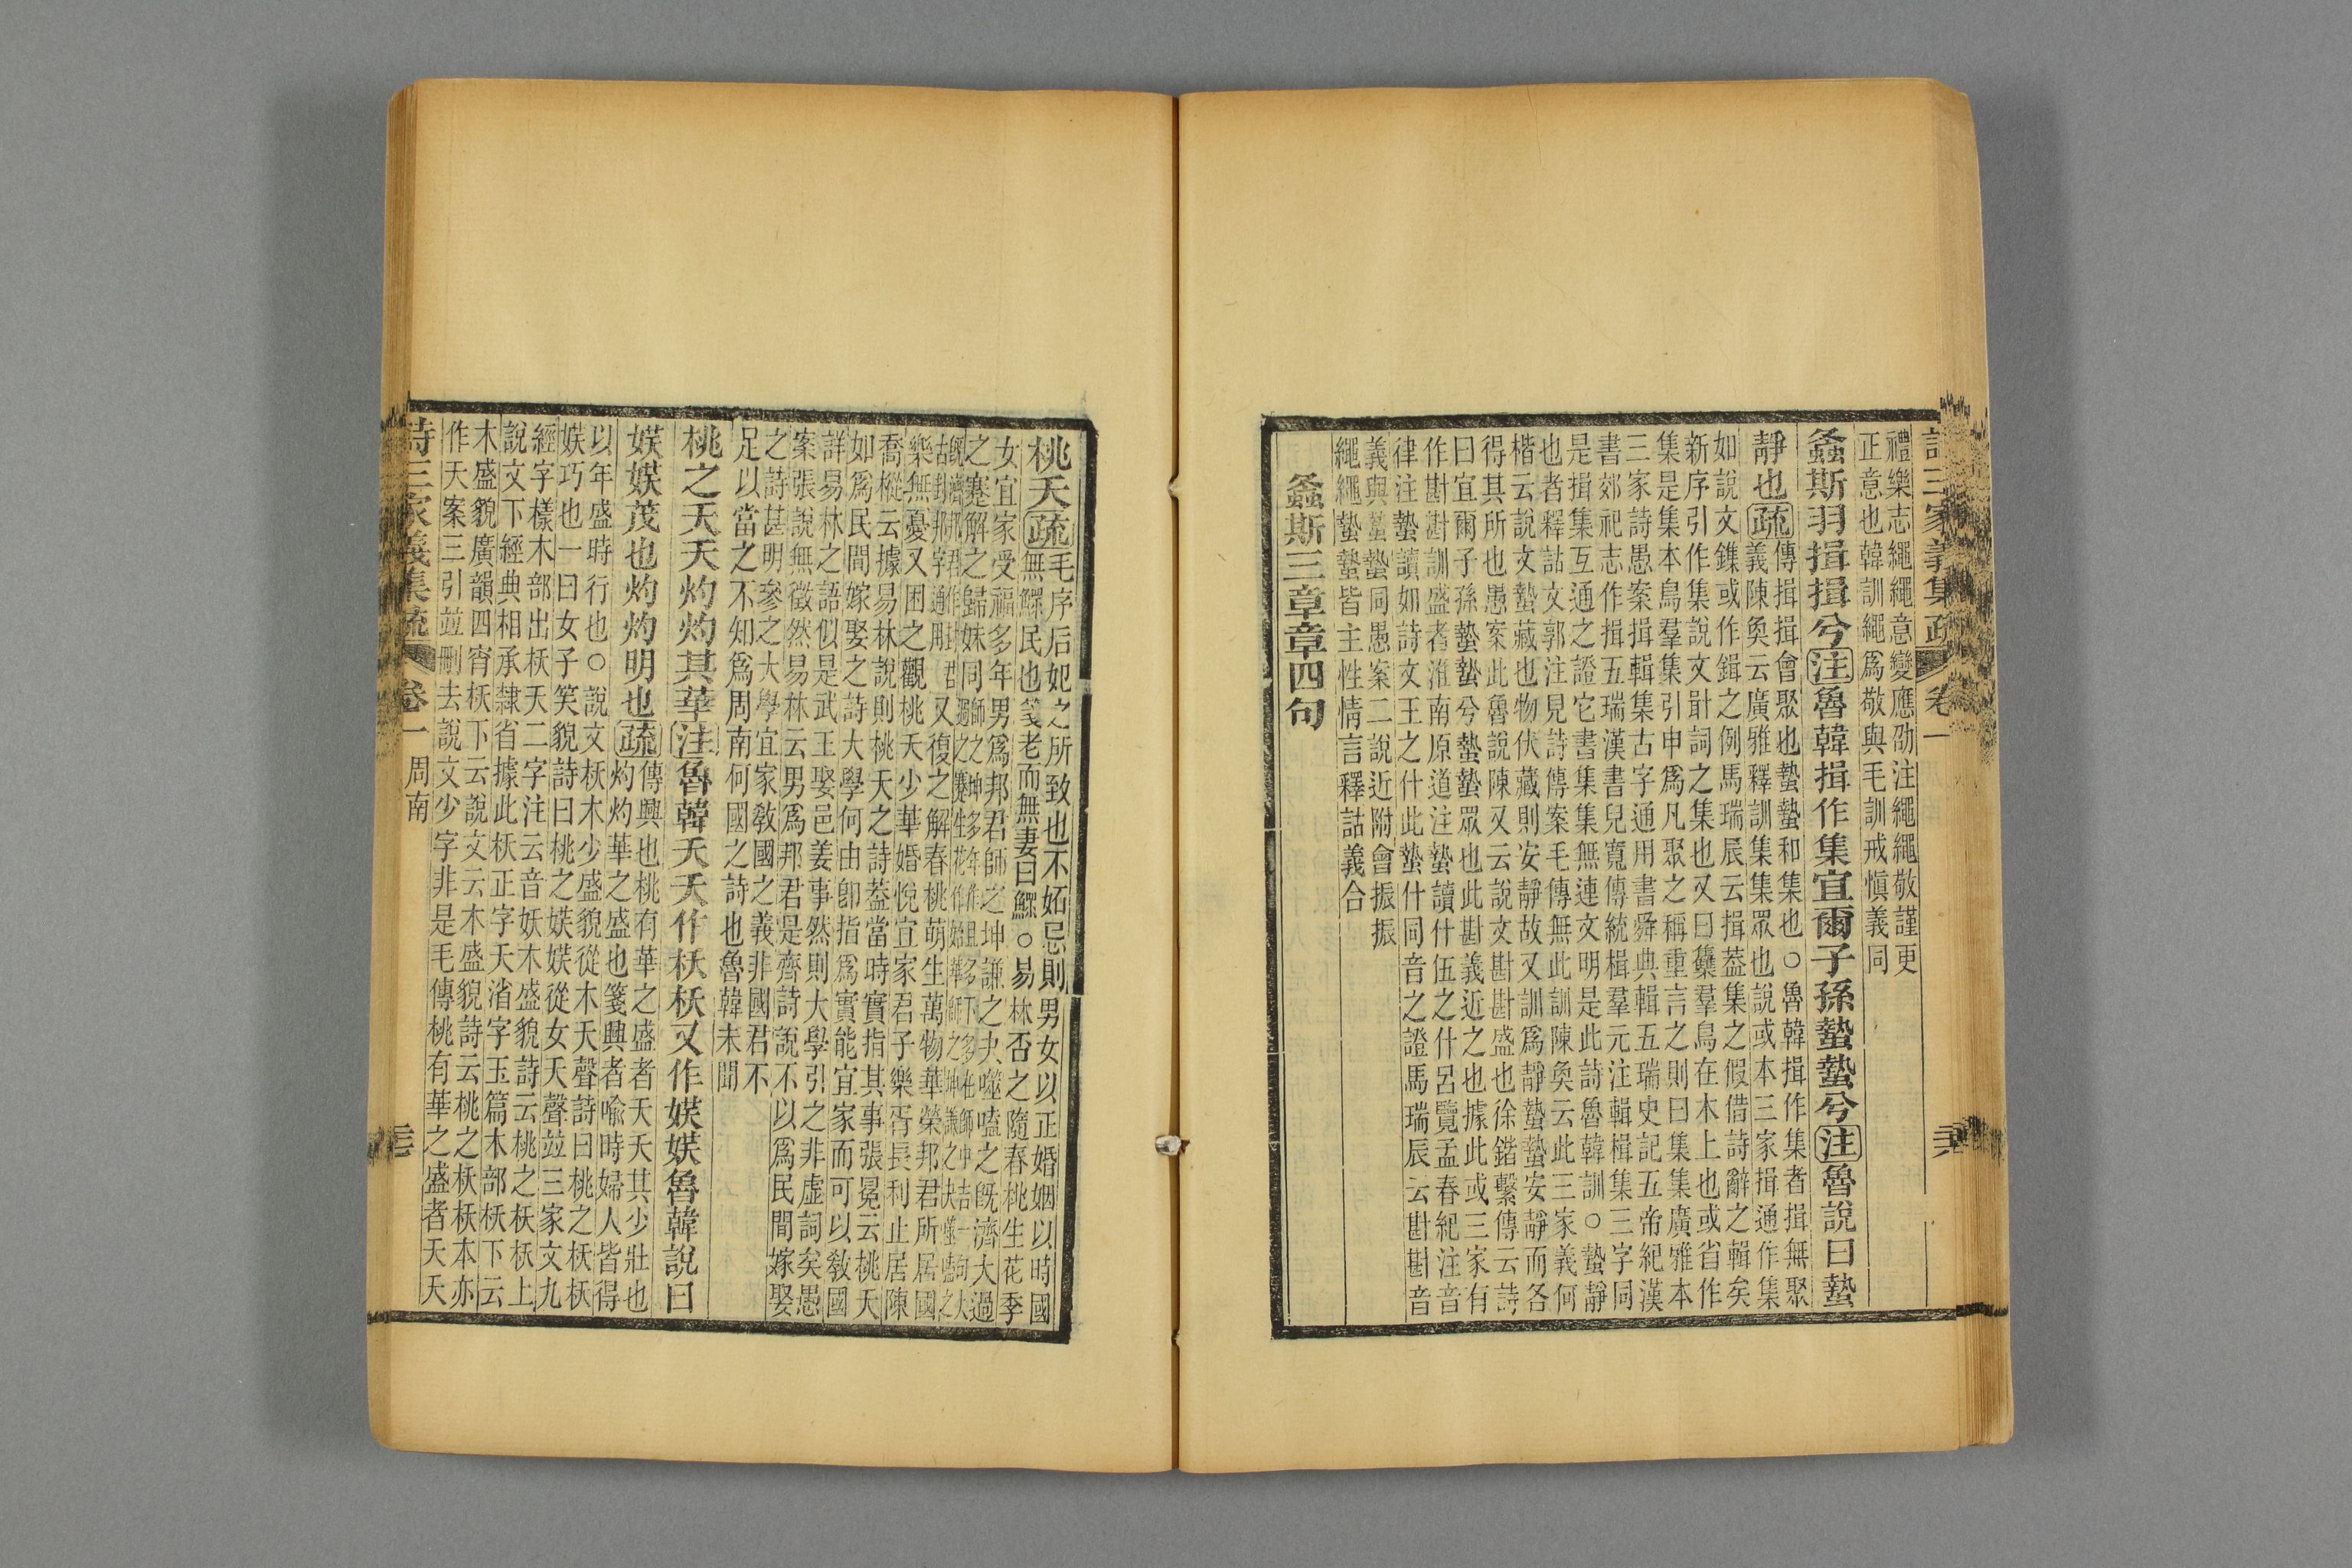 詩三家義集疏 卷一
禮樂志繩繩意變應劭注繩繩敬謹更
正意也韓訓繩爲敬與毛訓戒愼義同
螽斯羽揖揖兮注魯韓揖作集宜爾子孫蟄蟄兮注魯說曰蟄
靜也疏
傳揖揖會聚也蟄蟄和集也○魯韓揖作集者揖無聚
義陳奐云廣雅釋訓集集眾也說或本三家揖通作集
如說文鏶或作鍓之例馬瑞辰云揖葢集之假借詩辭之輯矣
新序引作集說文咠詞之集也又曰雧羣鳥在木上也或省作
集是集本鳥羣集引申爲凡聚之稱重言之則曰集集廣雅本
三家詩愚案揖輯集古字通用書舜典輯五瑞史記五帝紀漢
書郊祀志作揖五瑞漢書兒寬傳統楫羣元注輯楫集三字同
是揖集互通之證它書集集無連文明是此詩魯韓訓○蟄靜
也者釋詁文郭注見詩傳案毛傳無此訓陳奐云此三家義何
楷云說文蟄藏也物伏藏則安靜故又訓爲靜蟄蟄安靜而各
得其所也愚案此魯說陳又云說文卙卙盛也徐鍇繫傳云詩
曰宜爾子孫蟄蟄兮蟄蟄眾也此卙義近之也據此或三家有
作卙卙訓盛者淮南原道注蟄讀什伍之什呂覽孟春紀注音
律注蟄讀如詩文王之什此蟄什同音之證馬瑞辰云卙卙音
義與蟄蟄同愚案二說近附會振振
繩繩蟄蟄皆主性情言釋詁義合
螽斯三章章四句
三六
桃夭疏
毛序后妃之所致也不妬忌則男女以正婚姻以時國
無鰥民也箋老而無妻曰鰥○易林否之隨春桃生花季
女宜家受福多年男爲邦君師之坤謙之夬噬嗑之旣濟大過
之蹇解之歸妹同
樂無憂又困之觀桃夭少華婚悅宜家君子樂胥長利止居陳
喬樅云據易林說則桃夭之詩葢當時實指其事張冕云桃夭
如爲民間嫁娶之詩大學何由卽指爲實能宜家而可以敎國
詳易林之語似是武王娶邑姜事然則大學引之非虛詞矣愚
案張說無徵然易林云男爲邦君是齊詩說不以爲民間嫁娶
之詩甚明參之大學宜家敎國之義非國君不
足以當之不知爲周南何國之詩也魯韓未聞
桃之夭夭灼灼其華注魯韓夭夭作枖枖又作媄媄魯韓說曰
媄媄茂也灼灼明也疏
傳興也桃有華之盛者夭夭其少壯也
灼灼華之盛也箋興者喻時婦人皆得
以年盛時行也○說文枖木少盛貌從木夭聲詩曰桃之枖枖
媄巧也一曰女子笑貌詩曰桃之媄媄從女夭聲竝三家文九
經字樣木部出枖夭二字注云音妖木盛貌詩云桃之枖枖上
說文下經典相承隸省據此枖正字夭渻字玉篇木部枖下云
木盛貌廣韻四宵枖下云說文云木盛貌詩云桃之枖枖本亦
作夭案三引竝刪去說文少字非是毛傳桃有華之盛者夭夭
詩三家義集疏 卷一 周南
三七